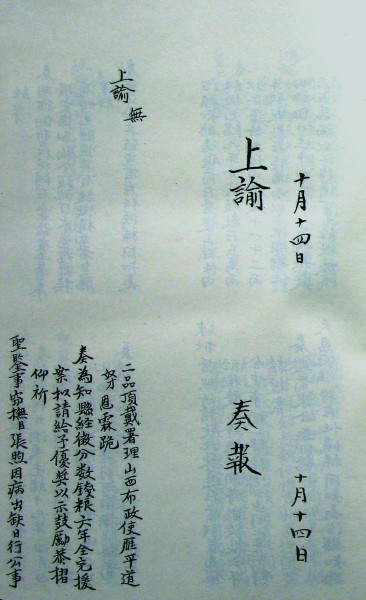 十月十四日
上諭
上諭 無
十月十四日
奏報
二品頂戴署理山西布政使雁平道
奴才恩霖跪
奏為知縣經徵分数錢粮六年全完援
案擬請給予優奬以示鼓勵恭摺
仰祈
聖鑒事窃撫臣張煦因病出缺日行公事